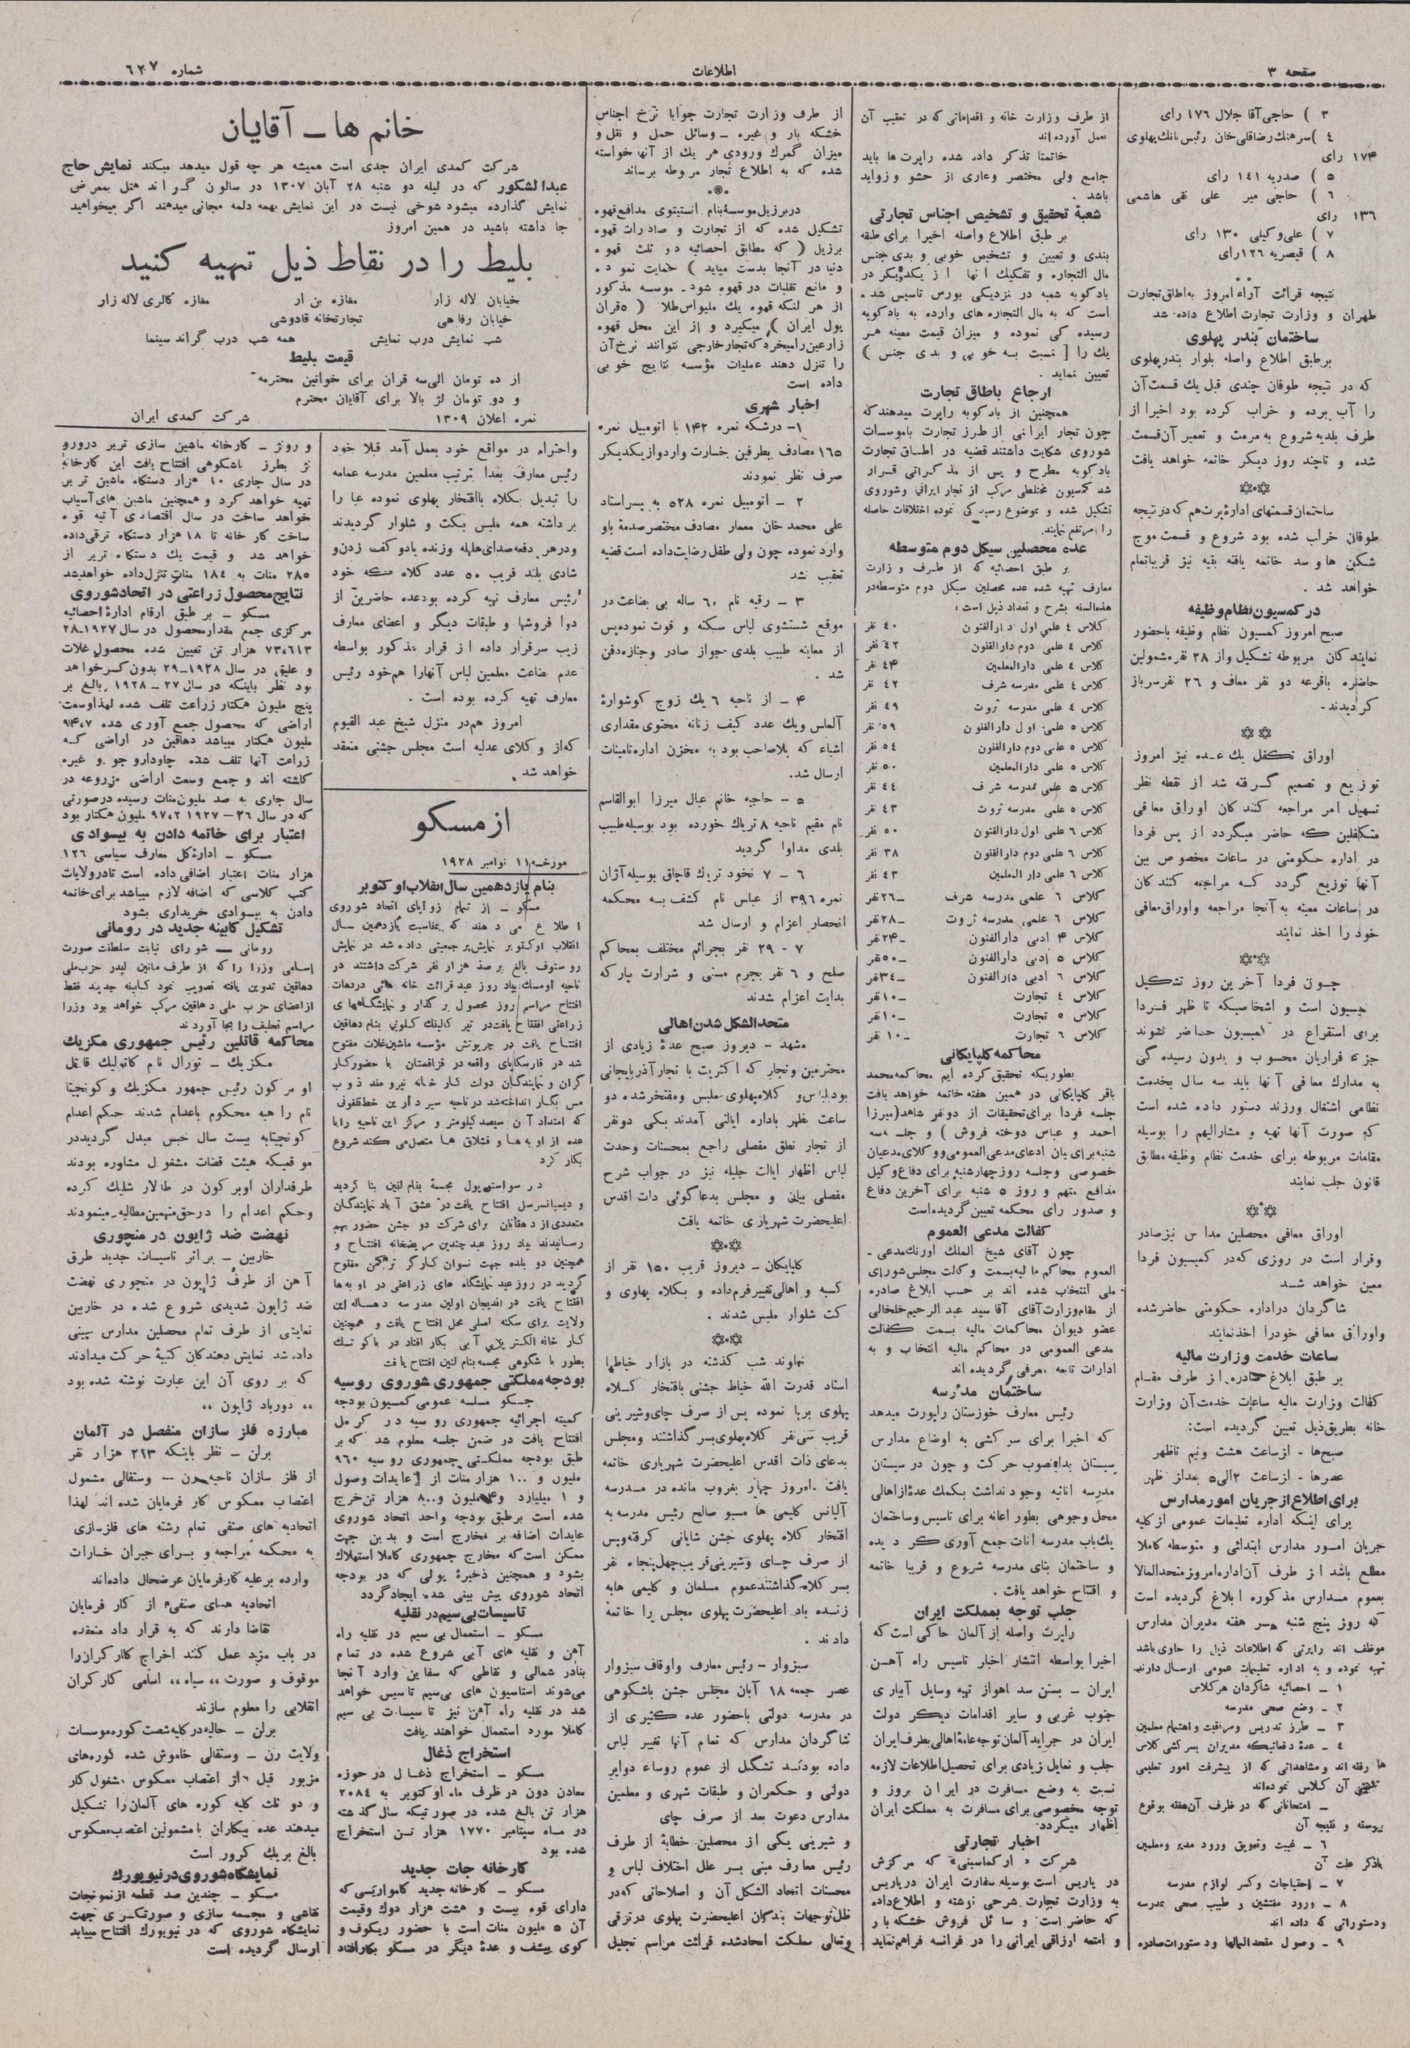 صفحه ۳
اطلاعات
شماره ۶۲۷
۳ ) حاجی آقا جلال ۱۷۶ رای
۴ ) سرهنك رضاقلی خان رئیس بانك پهلوی
۱۷۴ رای
۵ ) صدریه ۱۴۱ رای
۶ ) حاجی میر علی نقی هاشمی
۱۳۶ رای
۷ ) علی وکیلی ۱۳۰ رای
۸ ) قیصریه ۱۲۶ رای
نتیجه قرائت آراء امروز به اطاق تجارت
طهران و وزارت تجارت اطلاع داده شد
ساختمان بندر پهلوی
برطبق اطلاع واصله بلوار بندر پهلوی
که در نتیجه طوفان چندی قبل یك قسمت آن
را آب برده و خراب کرده بود اخیرا از
طرف بلدیه شروع به مرمت و تعمیر آن قسمت
شده و تا چند روز دیگر خاتمه خواهد یافت
ساختمان قسمتهای اداره پرت هم که در نتیجه
طوفان خراب شده بود شروع و قسمت موج
شکن ها و سد خاتمه یافته بقیه نیز قریبا تمام
خواهد شد .
در کمسیون نظام وظیفه
صبح امروز کمسیون نظام وظیفه با حضور
نمایندکان مربوطه تشکیل و از ۲۸ نفر مشمولین
حاضره باقرعه دو نفر معاف و ۲۶ نفر سرباز
کردیدند .
اوراق تکفل یك عده نیز امروز
توزیع و تصمیم گرفته شد از نقطه نظر
تسهیل امر مراجعه کنندکان اوراق معافی
متکفلین که حاضر میگردد از پس فردا
در اداره حکومتی در ساعات مخصوص بین
آنها توزیع گردد که مراجعه کنندکان
در ساعات معینه به آنجا مراجعه و اوراق معافی
خود را اخذ نمایند
چون فردا آخرین روز تشکیل
کمسیون است و اشخاصیکه تا ظهر فردا
برای استقراع در کمیسیون حاضر نشوند
جزء فراریان محسوب و بدون رسیده گی
به مدارك معافی آنها باید سه سال بخدمت
نظامی اشتغال ورزند دستور داده شده است
که صورت آنها تهیه و مشارالیهم را بوسیله
مقامات مربوطه برای خدمت نظام وظیفه مطابق
قانون جلب نمایند
اوراق معافی محصلین مدارس نیز صادر
وقرار است در روزی که در کمیسیون فردا
معین خواهد شد
شاگردان در اداره حکومتی حاضر شده
و اوراق معافی خود را اخذ نمایند
ساعات خدمت وزارت مالیه
بر طبق ابلاغ صادره از طرف مقام
کفالت وزارت مالیه ساعات خدمت آن وزارت
خانه بطریق ذیل تعیین گردیده است :
صبح‌ها - از ساعت هشت ونیم تا ظهر
عصرها - از ساعت ۲ الی ۵ بعد از ظهر
برای اطلاع از جریان امور مدارس
برای اینکه اداره تعلیمات عمومی از کلیه
جریان امور مدارس ابتدائی و متوسطه کاملا
مطلع باشد از طرف آن اداره امروز متحدالمالا
بعموم مدارس مذکوره ابلاغ گردیده است
که روز پنج شنبه هر هفته مدیران مدارس
موظف اند راپرتی که اطلاعات ذیل را حاوی باشد
تهیه نموده و به اداره تعلیمات عمومی ارسال دارند
۱ ـ احصائیه شاگردان هر کلاس
۲ ـ وضع صحی مدرسه
۳ ـ طرز تدریس و مراقبت و اهتمام معلمین
۴ ـ عدۀ دفعاتیکه مدیران بسر کشی کلاس
ها رفته اند و مشاهداتی که از پیشرفت امور تعلیمی
آن کلاس نموده‌اند
ـ امتحاناتی که در ظرف آن هفته بوقوع
پیوسته و نتیجه آن
۶ ـ غیبت و تعویق ورود مدیر و معلمین
باذکر علت آن
۷ ـ احتیاجات و کسر لوازم مدرسه
۸ ـ ورود مفتشین و طبیب صحی بمدرسه
و دستوراتی که داده اند
۹ ـ وصول متحدالمالها و دستورات صادره
از طرف وزارت خانه و اقداماتی که در تعقیب آن
بعمل آورده اند
خاتمتا تذکر داده شده راپرت ها باید
جامع ولی مختصر و عاری از حشو و زواید
باشد .
شعبۀ تحقیق و تشخیص اجناس تجارتی
بر طبق اطلاع واصله اخیرا برای طبقه
بندی و تعیین و تشخیص خوبی و بدی جنس
مال التجاره و تفکیك آنها از یکدیگر در
بادکوبه شعبه در نزدیکی بورس تاسیس شده
است که به مال التجاره های وارده به بادکوبه
رسیده کی نموده و میزان قیمت معینه هر
یك را [ نسبت به خوبی و بدی جنس )
تعیین نماید .
ارجاع باطاق تجارت
همچنین از بادکوبه راپرت میدهند که
چون تجار ایرانی از طرز تجارت با موسسات
شوروی شکایت داشتند قضیه در اطاق تجارت
بادکوبه مطرح و پس از مذکراتی قرار
شد کمسیون مختلطی مرکب از تجار ایرانی و شوروی
تشکیل شده و بموضوع رسیدگی نموده اختلافات حاصله
را مرتفع نمایند
عده محصلین سیکل دوم متوسطه
بر طبق احصائیه که از طرف وزارت
معارف تهیه شده عده محصلین سیکل دوم متوسطه در
هذه السنه بشرح و تعداد ذیل است :
کلاس ۴ علمی اول دارالفنون ۴۰ نفر
کلاس ۴ علمی دوم دارالفنون ۴۲ نفر
کلاس ۴ علمی دارالمعلمین ۴۴ نفر
کلاس ۴ علمی مدرسه شرف ۴۲ نفر
کلاس ۴ علمی مدرسه ثروت ۴۹ نفر
کلاس ۵ علمی اول دارالفنون ۵۹ نفر
کلاس ۵ علمی دوم دارالفنون ۵۴ نفر
کلاس ۵ علمی دارالمعلمین ۵۰ نفر
کلاس ۵ علمی مدرسه شرف ۴۴ نفر
کلاس ۵ علمی مدرسه ثروت ۴۳ نفر
کلاس ۶ علمی اول دارالفنون ۵۰ نفر
کلاس ۶ علمی دوم دارالفنون ۳۸ نفر
کلاس ۶ علمی دارالمعلمین ۴۳ نفر
کلاس ۶ علمی مدرسه شرف ۲۶ نفر
کلاس ۶ علمی مدرسه ثروت ۲۸ نفر
کلاس ۴ ادبی دارالفنون ۲۴ نفر
کلاس ۵ ادبی دارالفنون ۵۰ نفر
کلاس ۶ ادبی دارالفنون ۳۴ نفر
کلاس ۴ تجارت ۱۰ نفر
کلاس ۵ تجارت ۱۰ نفر
کلاس ۶ تجارت ۱۰ نفر
محاکمه گلپایگانی
بطوریکه تحقیق کرده ایم محاکمه محمد
باقر گلپایگانی در همین هفته خاتمه خواهد یافت
جلسه فردا برای تحقیقات از دو نفر شاهد (میرزا
احمد و عباس دوخته فروش ) و جلسه سه
شنبه برای بیان ادعای مدعی العمومی و وکلای مدعیان
خصوصی و جلسه روز چهارشنبه برای دفاع وکیل
مدافع متهم و روز ۵ شنبه برای آخرین دفاع
و صدور رای محکمه تعیین گردیده است
کفالت مدعی العموم
چون آقای شیخ الملك اورنك مدعی ـ
العموم محاکم مالیه بسمت وکالت مجلس شورای
ملی انتخاب شده اند بر حسب ابلاغ صادره
از مقام وزارت آقای آقا سید عبدالرحیم خلخالی
عضو دیوان محاکمات مالیه بسمت کفالت
مدعی العمومی در محاکم مالیه انتخاب و به
ادارات تابعه معرفی گردیده اند
ساختمان مدرسه
رئیس معارف خوزستان راپورت میدهد
که اخیرا برای سرکشی به اوضاع مدارس
سیستان بدانصوب حرکت و چون در سیستان
مدرسه اناثیه وجود نداشت بکمك عدۀ از اهالی
محل وجوهی بطور اعانه برای تاسیس و ساختمان
یك باب مدرسه اناث جمع آوری کردیده
و ساختمان بنای مدرسه شروع و قریبا خاتمه
و افتتاح خواهد یافت .
جلب توجه بمملکت ایران
راپرت واصله از آلمان حاکی است که
اخیرا بواسطه انتشار اخبار تاسیس راه آهن
ایران ـ بستن سد اهواز تهیه وسایل آبیاری
جنوب غربی و سایر اقدامات دیگر دولت
ایران در جراید آلمان توجه عامۀ اهالی بطرف ایران
جلب و تمایل زیادی برای تحصیل اطلاعات لازمه
نسبت به وضع مسافرت در ایران بروز و
توجه مخصوصی برای مسافرت به مملکت ایران
اظهار میگردد .
اخبار تجارتی
شرکت « ارکماسبنی» که مرکزش
در پاریس است بوسیله سفارت ایران در پاریس
به وزارت تجارت شرحی نوشته و اطلاع داده
که حاضر است وسائل فروش خشکه بار
و امتعه ارزاقی ایرانی را در فرانسه فراهم نماید
از طرف وزارت تجارت جوابا نرخ اجناس
خشکه بار و غیره ـ وسائل حمل و نقل و
میزان گمرك ورودی هر یك از آنها خواسته
شده که به اطلاع تجار مربوطه برساند
در برزیل موسسۀ بنام انستیتوی مدافع قهوه
تشکیل شده که از تجارت و صادرات قهوه
برزیل ( که مطابق احصائیه دو ثلث قهوه
دنیا در آنجا بدست میاید ) حمایت نموده
و مانع تقلبات در قهوه شود . موسسه مذکور
از هر لنگه قهوه یك ملیواس طلا ( ۵ قران
پول ایران ) میگیرد و از این محل قهوه
زارعین را میخرد که تجار خارجی نتوانند نرخ آن
را تنزل دهند عملیات مؤسسه نتایج خوبی
داده است
اخبار شهری
۱- درشکه نمره ۱۴۲ با اتومبیل نمره
۱۶۵ مصادف بطرفین خسارت وارد و از یکدیگر
صرف نظر نمودند
۲ ـ اتومبیل نمره ۵۳۸ به پسر استاد
علی محمد خان معمار مصادف مختصر صدمۀ باو
وارد نموده چون ولی طفل رضایت داده است قضیه
تعقیب نشد
۳ ـ رقیه نام ۶۰ ساله بی بضاعت در
موقع شستشوی لباس سکته و فوت نموده پس
از معاینه طبیب بلدی جواز صادر و جنازه دفن
شد .
۴ ـ از ناحیه ۶ یك زوج گوشواره
الماس و یك عدد کیف زنانه محتوی مقداری
اشیاء که بلاصاحب بود به مخزن اداره تامینات
ارسال شد .
۵ ـ حاجیه خانم عیال میرزا ابوالقاسم
نام مقیم ناحیه ۸ تریاك خورده بود بوسیله طبیب
بلدی مداوا گردید
۶ ـ ۷ نخود تریاك قاچاق بوسیله آژان
نمره ۳۹۶ از عباس نام کشف به محکمه
انحصار اعزام و ارسال شد
۷ ـ ۲۹ نفر بجرائم مختلف بمحاکم
صلح و ۶ نفر بجرم مستی و شرارت پارکه
بدایت اعزام شدند
متحدالشکل شدن اهالی
مشهد ـ دیروز صبح عدۀ زیادی از
محترمین و تجار که اکثریت با تجار آذربایجانی
بود بلباس و کلاه پهلوی ملبس و مفتخر شده دو
ساعت بظهر باداره ایالتی آمدند یکی دو نفر
از تجار نطق مفصلی راجع بمحسنات وحدت
لباس اظهار ایالت جلیله نیز در جواب شرح
مفصلی بیان و مجلس بدعاگوئی ذات اقدس
اعلیحضرت شهریاری خاتمه یافت
گلپایگان ـ دیروز قریب ۱۵۰ نفر از
کسبه و اهالی تغییر فرم داده و بکلاه پهلوی و
کت شلوار ملبس شدند .
نهاوند شب گذشته در بازار خیاطها
استاد قدرت الله خیاط جشنی بافتخار کلاه
پهلوی برپا نموده پس از صرف چای و شیرینی
قریب سی نفر کلاه پهلوی بسر گذاشتند و مجلس
بدعای ذات اقدس اعلیحضرت شهریاری خاتمه
یافت . امروز چهار بغروب مانده در مدرسه
آلیانس کلیمی ها مسیو صالح رئیس مدرسه به
افتخار کلاه پهلوی جشن شایانی گرفته و پس
از صرف چای و شیرینی قریب چهل پنجاه نفر
بسر کلاه گذاشتند عموم مسلمان و کلیمی هابه
زنده باد اعلیحضرت پهلوی مجلس را خاتمه
دادند .
سبزوار ـ رئیس معارف و اوقاف سبزوار
عصر جمعه ۱۸ آبان مجلس جشن باشکوهی
در مدرسه دولتی باحضور عده کثیری از
شاگردان مدارس که تمام آنها تغییر لباس
داده بودند تشکیل از عموم روساء دوایر
دولتی و حکمران و طبقات شهری و معلمین
مدارس دعوت بعد از صرف چای
و شیرینی یکی از محصلین خطابۀ از طرف
رئیس معارف مبنی بر علل اختلاف لباس و
محسنات اتحاد الشکل آن و اصلاحاتی که در
ظل توجهات بندگان اعلیحضرت پهلوی در ترقی
و تعالی مملکت اتخاذ شده قرائت مراسم تجلیل
خانم ها ـ آقایان
شرکت کمدی ایران جدی است همیشه هر چه قول میدهد میکند نمایش حاج
عبدالشکور که در لیله دو شنبه ۲۸ آبان ۱۳۰۷ در سالون گراند هتل بمعرض
نمایش گذارده میشود شوخی نیست در این نمایش بهمه دلمه مجانی میدهند اگر میخواهید
جا داشته باشید در همین امروز
بلیط را در نقاط ذیل تهیه کنید
خیابان لاله زار مغازه بن ار مغازه گالری لاله زار
خیابان رفاهی تجارتخانه قادوشی
شب نمایش درب نمایش همه شب درب گراند سینما
قیمت بلیط
از ده تومان الی سه قران برای خوانین محترمه
و دو تومان از بالا برای آقایان محترم
نمره اعلان ۱۳۰۹ شرکت کمدی ایران
واحترام در مواقع خود بعمل آمد قبلا خود
رئیس معارف بعدا بترتیب معلمین مدرسه عمامه
را تبدیل بکلاه باافتخار پهلوی نموده عبا را
برداشته همه ملبس بکت و شلوار گردیدند
و در هر دفعه صدای هلهله و زنده باد و کف زدن و
شادی بلند قریب ۵۰ عدد کلاه که خود
رئیس معارف تهیه کرده بود بعده حاضرین از
دوا فروشها و طبقات دیگر و اعضای معارف
زیب سر قرار داده از قرار مذکور بواسطه
عدم بضاعت معلمین لباس آنها را هم خود رئیس
معارف تهیه کرده بوده است .
امروز هم در منزل شیخ عبد القیوم
که از وکلای عدلیه است مجلس جشنی منعقد
خواهد شد .
از مسکو
مورخه ۱۱ نوامبر ۱۹۲۸
بنام یازدهمین سال انقلاب اوکتوبر
مسکو ـ از تمام زوایای اتحاد شوروی
اطلاع می دهند که بمناسبت یازدهمین سال
انقلاب اوکتوبر نمایش پر جمعیتی داده شد در نمایش
روستوف بالغ بر صد هزار نفر شرکت داشتند در
ناحیه اومسك بیاد روز عید قرائت خانه هائی در دهات
افتتاح مراسم روز محصول برگذار و نمایشگاههای
زراعتی افتتاح یافت در تیر کالینك کلوبی بنام دهاقین
افتتاح یافت در چریوتش مؤسسه ماشین غلات مفتوح
شد در قارسکاپای واقعه در قزاقستان با حضور کار
گران و نمایندگان دولت کارخانه نیرومند ذوب
مس بکار انداخته شد در ناحیه سیر دارین خط تلفونی
که امتداد آن سیصد کیلومتر و مرکز این ناحیه را با
عده از اوبه ها و قشلاق ها متصل می کند شروع
بکار کرد
در سواستپول مجسمۀ بنام لنین بنا گردید
و دیسپانسر سل افتتاح یافت در عشق آباد نمایندگان
متعددی از دهقانان برای شرکت در جشن حضور بهم
رسانیدند بیاد روز عید چندین مریضخانه افتتاح و
همچنین دو بلده جهت نسوان کارگر ترکمن مفتوح
گردید در روز عید نمایشگاه های زراعتی در اوبه ها
افتتاح یافت در اندیجان اولین مدرسه ده ساله این
ولایت برای سکنه اصلی محل افتتاح یافت و همچنین
کارخانه الکتریزی آبی بکار افتاد در باکو تنك
بطور با شکوهی مجسمه بنام لنین افتتاح یافت
بودجه مملکتی جمهوری شوروی روسیه
مسکو مسلسه عمومی کمسیون بودجه
کمیته اجرائیه جمهوری روسیه در کرمل
افتتاح یافت در ضمن جلسه معلوم شد که بر
طبق بودجه مملکتی جمهوری روسیه ۹۶۰
ملیون و ۱۰۰ هزار منات از [عایدات وصول
و ۱ میلیارد و ملیون و ۸۰۰ هزار تن خرج
شده است برطبق بودجه واحد اتحاد شوروی
عایدات اضافه بر مخارج است و بدین جهت
ممکن است که مخارج جمهوری کاملا استهلاك
بشود و همچنین ذخیرۀ پولی که در بودجه
اتحاد شوروی پیش بینی شده ایجاد گردد
تاسیسات بی سیم در نقلیه
مسکو ـ استعمال بی سیم در نقلیه راه
آهن و نقلیه های آبی شروع شده در تمام
بنادر شمالی و نقاطی که سفاین وارد آنجا
می‌شوند استاسیون های بی‌سیم تاسیس خواهد
شد در نقلیه راه آهن نیز تاسیسات بی سیم
کاملا مورد استعمال خواهند یافت
استخراج ذغال
مسکو ـ استخراج ذغال در حوزه
معادن دون در ظرف ماه اوکتوبر به ۲۰۸۴
هزار تن بالغ شده در صورتیکه سال گذشته
دو ماه سپتامبر ۱۷۷۰ هزار تن استخراج
شده بود
کارخانه جات جدید
مسکو ـ کارخانه جدید کاموارسی که
دارای قوه بیست و هشت هزار دوك و قیمت
آن ۵ ملیون منات است با حضور ریکوف و
کوی بیشف و عدۀ دیگر در مسکو بکار افتاد
و روتژ ـ کارخانه ماشین سازی تریر در ورو
نژ بطرز باشکوهی افتتاح یافت این کارخانه
در سال جاری ۱۰ هزار دستگاه ماشین تریر
تهیه خواهد کرد و همچنین ماشین های آسیاب
خواهد ساخت در سال اقتصادی آتیه قوه
ساخت کارخانه تا ۱۸ هزار دستگاه ترقی داده
خواهد شد و قیمت یك دستگاه تریر از
۲۸۵ منات به ۱۸۴ منات تنزل داده خواهد شد
نتایج محصول زراعتی در اتحاد شوروی
مسکو ـ بر طبق ارقام ادارۀ احصائیه
مرکزی جمع مقدار محصول در سال ۱۹۲۷-۲۸
۷۳۰۶۱۳ هزار تن تعیین شده محصول غلات
و علیق در سال ۱۹۲۸-۲۹ بدون کسر خواهد
بود نظر باینکه در سال ۲۷ - ۱۹۲۸ بالغ بر
پنج ملیون هکتار زراعت تلف شده لهذا وسعت
اراضی که محصول جمع آوری شده ۹۴،۷
ملیون هکتار میباشد دهاقین در اراضی که
زراعت آنها تلف شده چاودار و جو و غیره
کاشته اند و جمع وسعت اراضی مزروعه در
سال جاری به صد ملیون منات رسیده در صورتی
که در سال ۲۶-۱۹۲۷ ۹۷،۲ ملیون هکتار بود
اعتبار برای خاتمه دادن به بیسوادی
مسکو ـ ادارۀ کل معارف سیاسی ۱۲۶
هزار منات اعتبار اضافی داده است تا در ولایات
کتب کلاسی که اضافه لازم میباشد برای خاتمه
دادن به بیسوادی خریداری بشود
تشکیل کابینه جدید در رومانی
رومانی ـ شورای نیابت سلطنت صورت
اسامی وزراء را که از طرف مانین لیدر حزب ملی
دهاقین تدوین یافته تصویب نمود کابینه جدید فقط
از اعضای حزب ملی دهاقین مرکب خواهد بود وزرا
مراسم تحلیف را بجا آوردند
محاکمه قاتلین رئیس جمهوری مکزیك
مکزیك ـ تورال نام کاتولیك قاتل
اوبرگون رئیس جمهور مکزیك و کونچیتا
نام راهبه محکوم باعدام شدند حکم اعدام
کونچیتا به بیست سال حبس مبدل گردید در
موقعیکه هیئت قضات مشغول مشاوره بودند
طرفداران اوبرگون در طالار شلیك کرده
و حکم اعدام را در حق متهمین مطالبه مینمودند
نهضت ضد ژاپون در منچوری
خاربین ـ بر اثر تاسیسات جدید طرق
آهن از طرف ژاپون در منچوری نهضت
ضد ژاپون شدیدی شروع شده در خاربین
نمایشی از طرف تمام محصلین مدارس چینی
داده شد نمایش دهندکان کتیبۀ حرکت میدادند
که بر روی آن این عبارت نوشته شده بود
،، دورباد ژاپون ،،
مبارزه فلز سازان منفصل در آلمان
برلن ـ نظر باینکه ۲۱۳ هزار نفر
از فلز سازان ناحیه رن ـ وستفالی مشمول
اعتصاب معکوس کارفرمایان شده اند لهذا
اتحادیه های صنفی تمام رشته های فلزسازی
به محکمه مراجعه و برای جبران خسارات
وارده بر علیه کارفرمایان عرضحال داده‌اند
اتحادیه های صنفی از کار فرمایان
تقاضا دارند که به قرار داد منعقده
در باب مزید عمل کنند اخراج کارگران را
موقوف و صورت ،، سیاه ،، اسامی کارگران
انقلابی را معلوم سازند
برلن ـ حالیه در کلیه شصت کوره موسسات
ولایت رن ـ وستفالی خاموش شده کوره‌های
مزبور قبل از اعتصاب معکوس مشغول کار
و دو ثلث کلیه کوره های آلمان را تشکیل
میدهند عده بیکاران با مشمولین اعتصاب معکوس
بالغ بر یك کرور است
نمایشگاه شوروی در نیویورك
مسکو ـ چندین صد قطعه از نمونجات
نقاشی و مجسمه سازی و صورتگری جهت
نمایشگاه شوروی که در نیویورك افتتاح مییابد
ارسال گردیده است